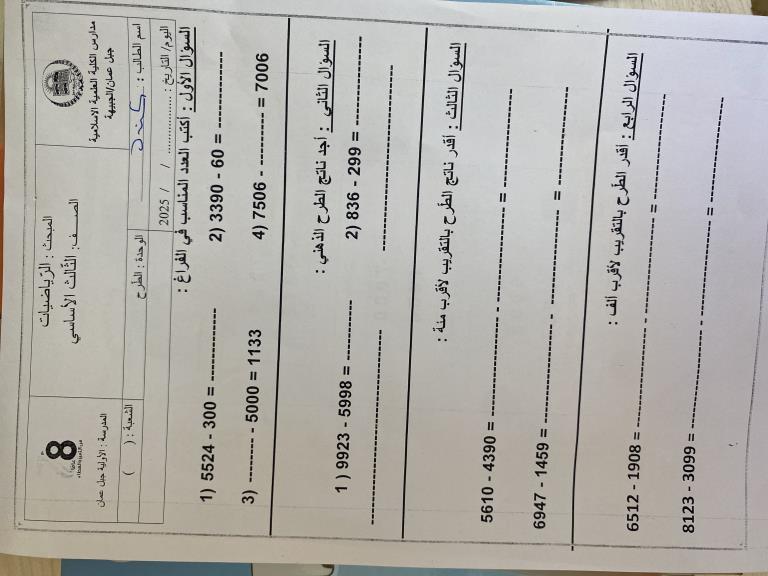 مدارس الكلية العلمية الاسلامية
جبل عمان/الجبيهة
المبحث : الرّياضيات
الصــف: الثّالث الأساسي
8
المدرسة : الأولية جبل عمان
اسم الطالب :
الوحدة : الطرح
الشعبة : ( )
( )
اليوم/ التاريخ : ................ / / 2025
السؤال الأول : أكتب العدد المناسب في الفراغ :
1) 5524 - 300 = ------------
2) 3390 - 60 = ------------
3) -------- - 5000 = 1133
4) 7506 - --------- = 7006
السؤال الثاني : أجد ناتج الطرح الذهني :
1 ) 9923 - 5998 = -----------
2) 836 - 299 = --------------
السؤال الثالث : أقدر ناتج الطرح بالتقريب لأقرب مئة :
5610 - 4390 = ---------------- - ---------------- = ----------------
6947 - 1459 = ---------------- - ---------------- = ----------------
السؤال الرابع : أقدر الطرح بالتقريب لأقرب ألف :
6512 - 1908 = ---------------- - ---------------- = ----------------
8123 - 3099 = ---------------- - ---------------- = ----------------